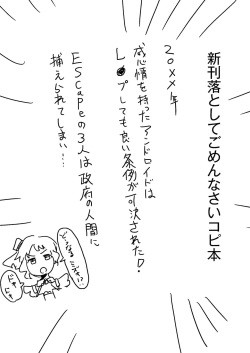 新刊落としてごめんなさいコピ本
20××年
感情を持ったアンドロイドは
L●プしても良い条例が可決された!
ESCapeの3人は政府の人間に
捕えられてしまい…
どーなるミズキ!!